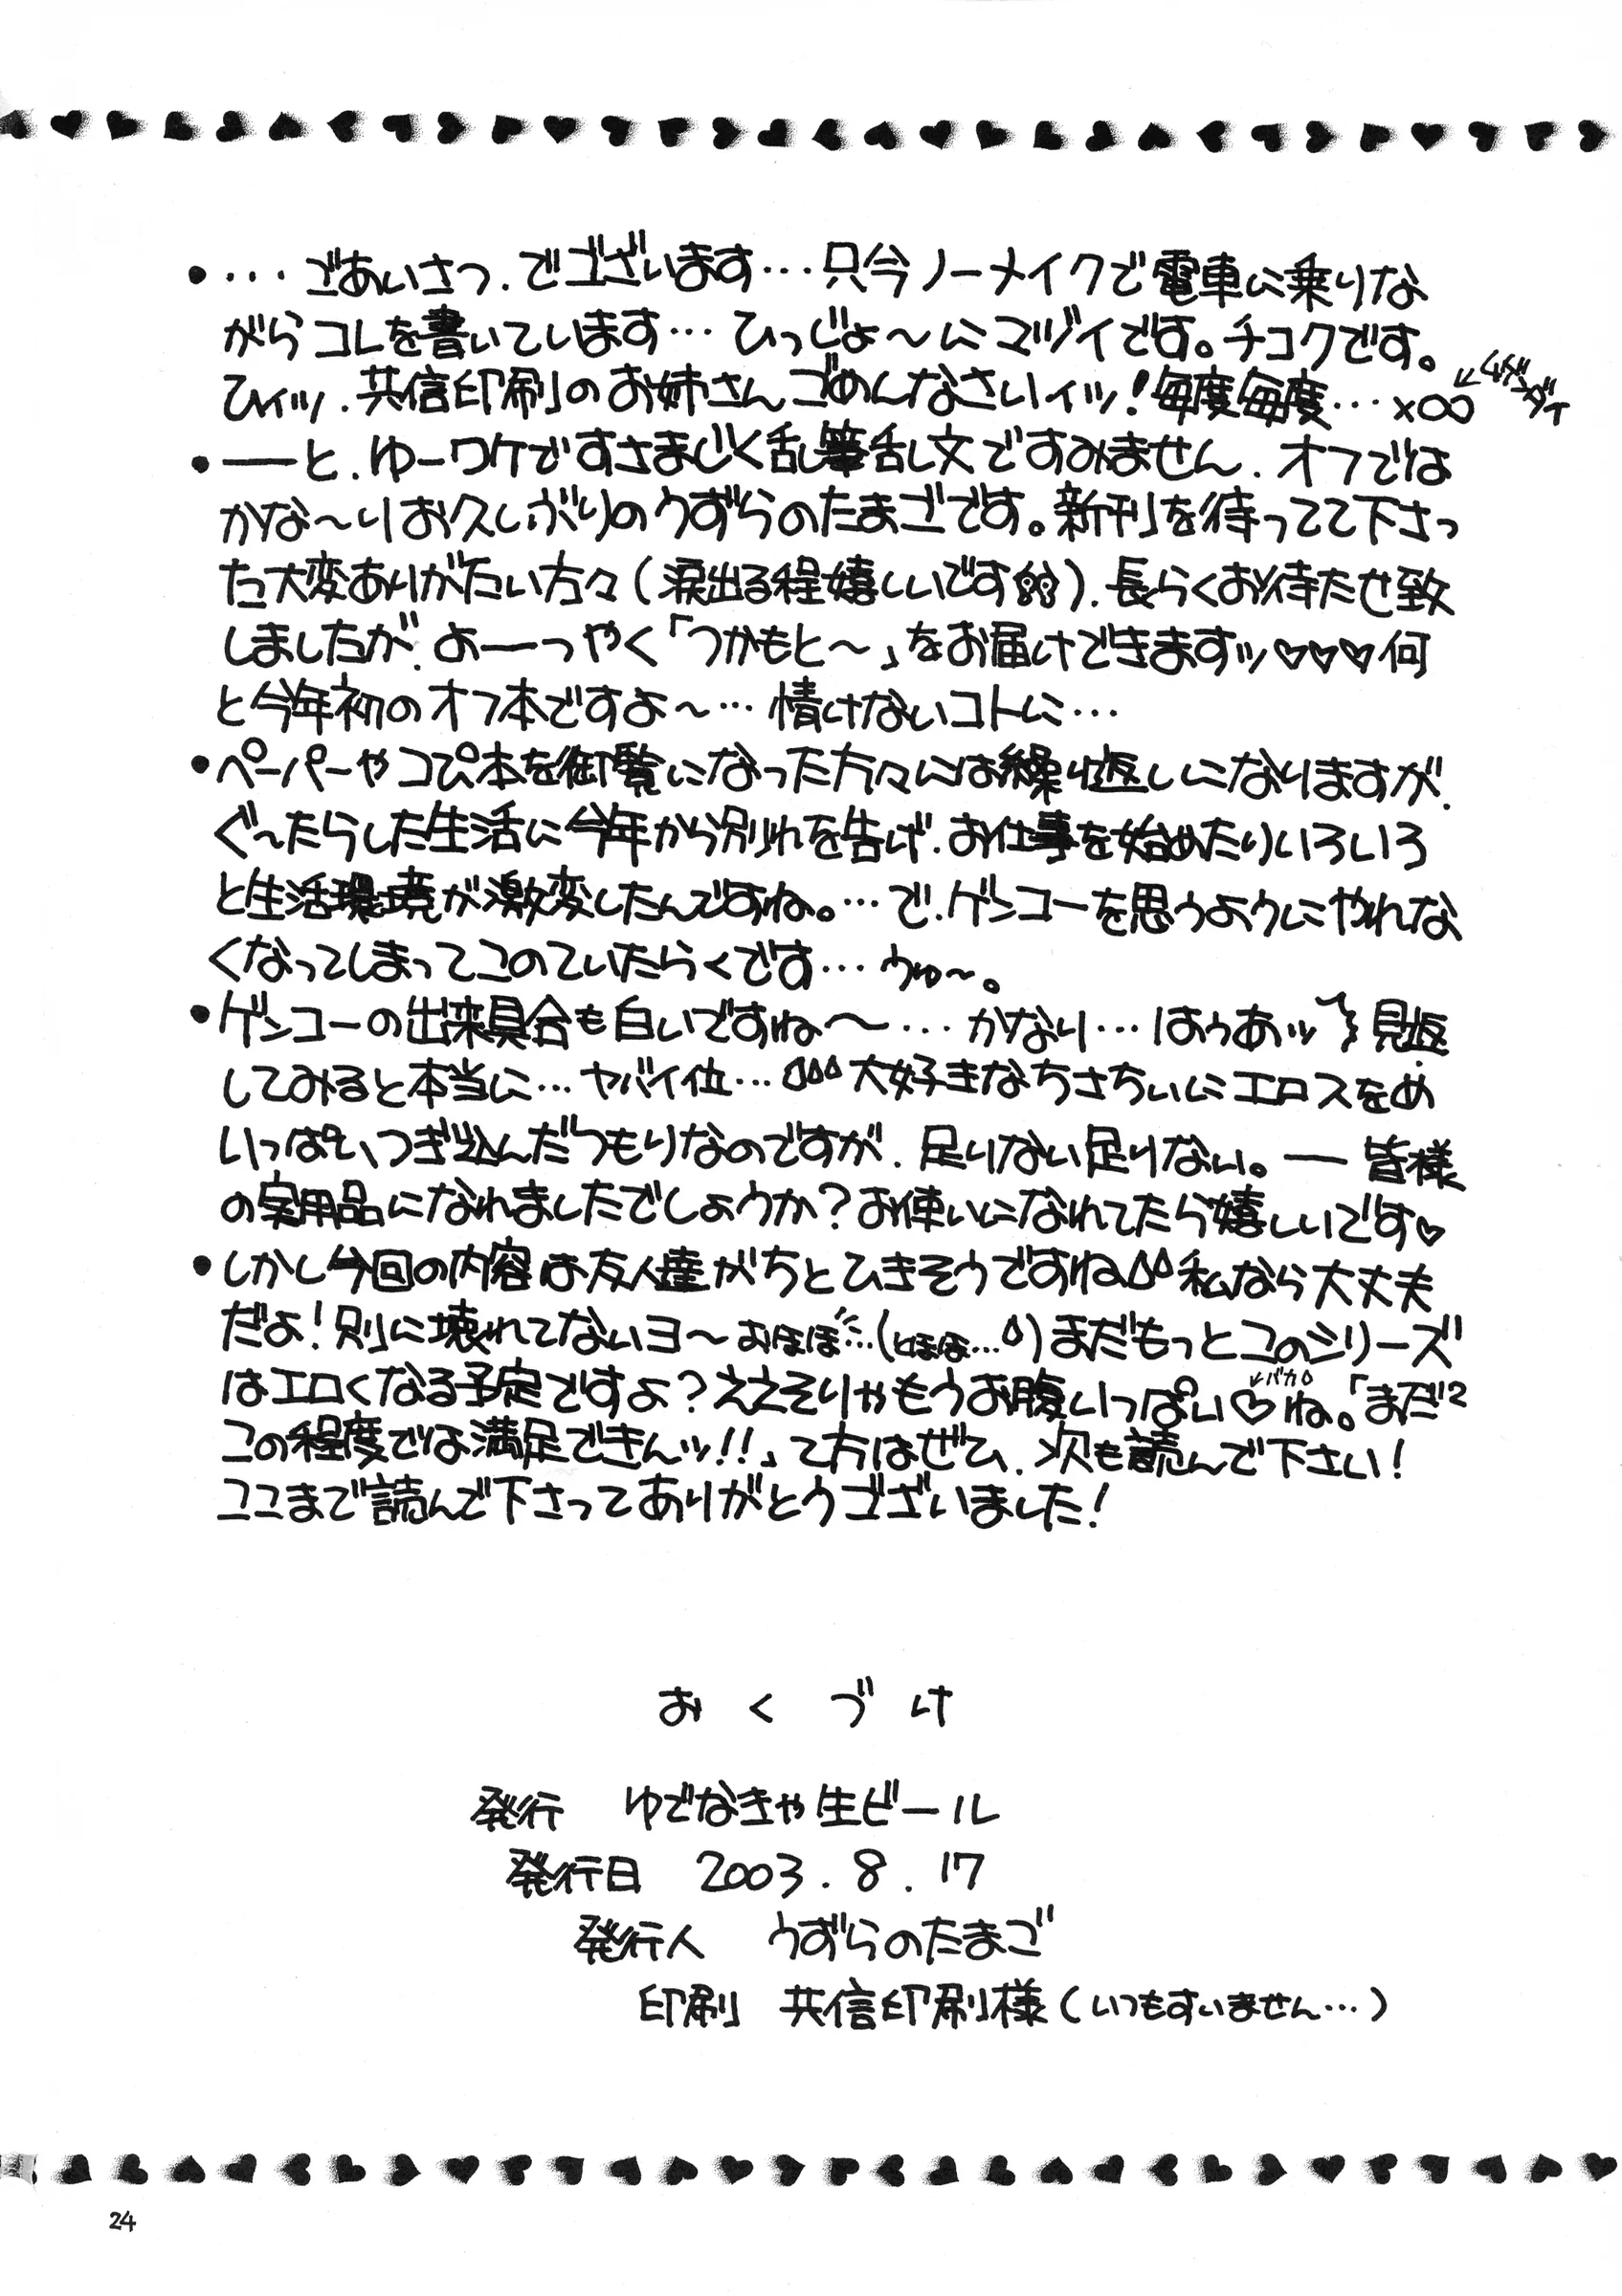 ●・・・ごあいさつ.でございます…只今ノーメイクで電車に乗りな
がらコレを書いています… ひっじょ〜にマヅイです。チコクです。
ひィッ.共信印刷のお姉さんごめんなさいィッ!毎度毎度…×∞
←ムゲンダイ
●——と.ゆーワケですさまじく乱筆乱文ですみません.オフでは
かな〜りお久しぶりのうずらのたまごです。新刊を待ってて下さっ
た大変ありがたい方々(涙出る程嬉しいです).長らくお待たせ致
しましたが.よーっやく「つかもと〜」をお届けできますッ♡♡♡何
と今年初のオフ本ですよ〜… 情けないコトに…
●ペーパーやコピ本を御覧になった方々には繰り返しになりますが.
ぐ〜たらした生活に今年から別れを告げ.お仕事を始めたりいろいろ
と生活環境が激変したんですね。…で.ゲンコーを思うようにやれな
くなってしまってこのていたらくです…うゅ〜。
●ゲンコーの出来具合も白いですね〜… かなり…はぅあッ 見返
してみると本当に…ヤバイ位…大好きなちさちぃにエロスをめ
いっぱいつぎ込んだつもりなのですが.足りない足りない。— 皆様
の実用品になれましたでしょうか?お使いになれてたら嬉しいです♡
●しかし今回の内容は友人達がちとひきそうですね 私なら大丈夫
だよ!別に壊れてないヨ〜おほほ…(とほほ…)まだもっとこのシリーズ
はエロくなる予定ですよ?ええそりゃもうお腹いっぱい♡ね。「まだ2
←バカ
この程度では満足できんッ!!」て方はぜひ.次も読んで下さい!
ここまで読んで下さってありがとうございました!
おくづけ
発行 ゆでなきゃ生ビール
発行日 2003.8.17
発行人 うずらのたまご
印刷 共信印刷様(いつもすいません…)
24